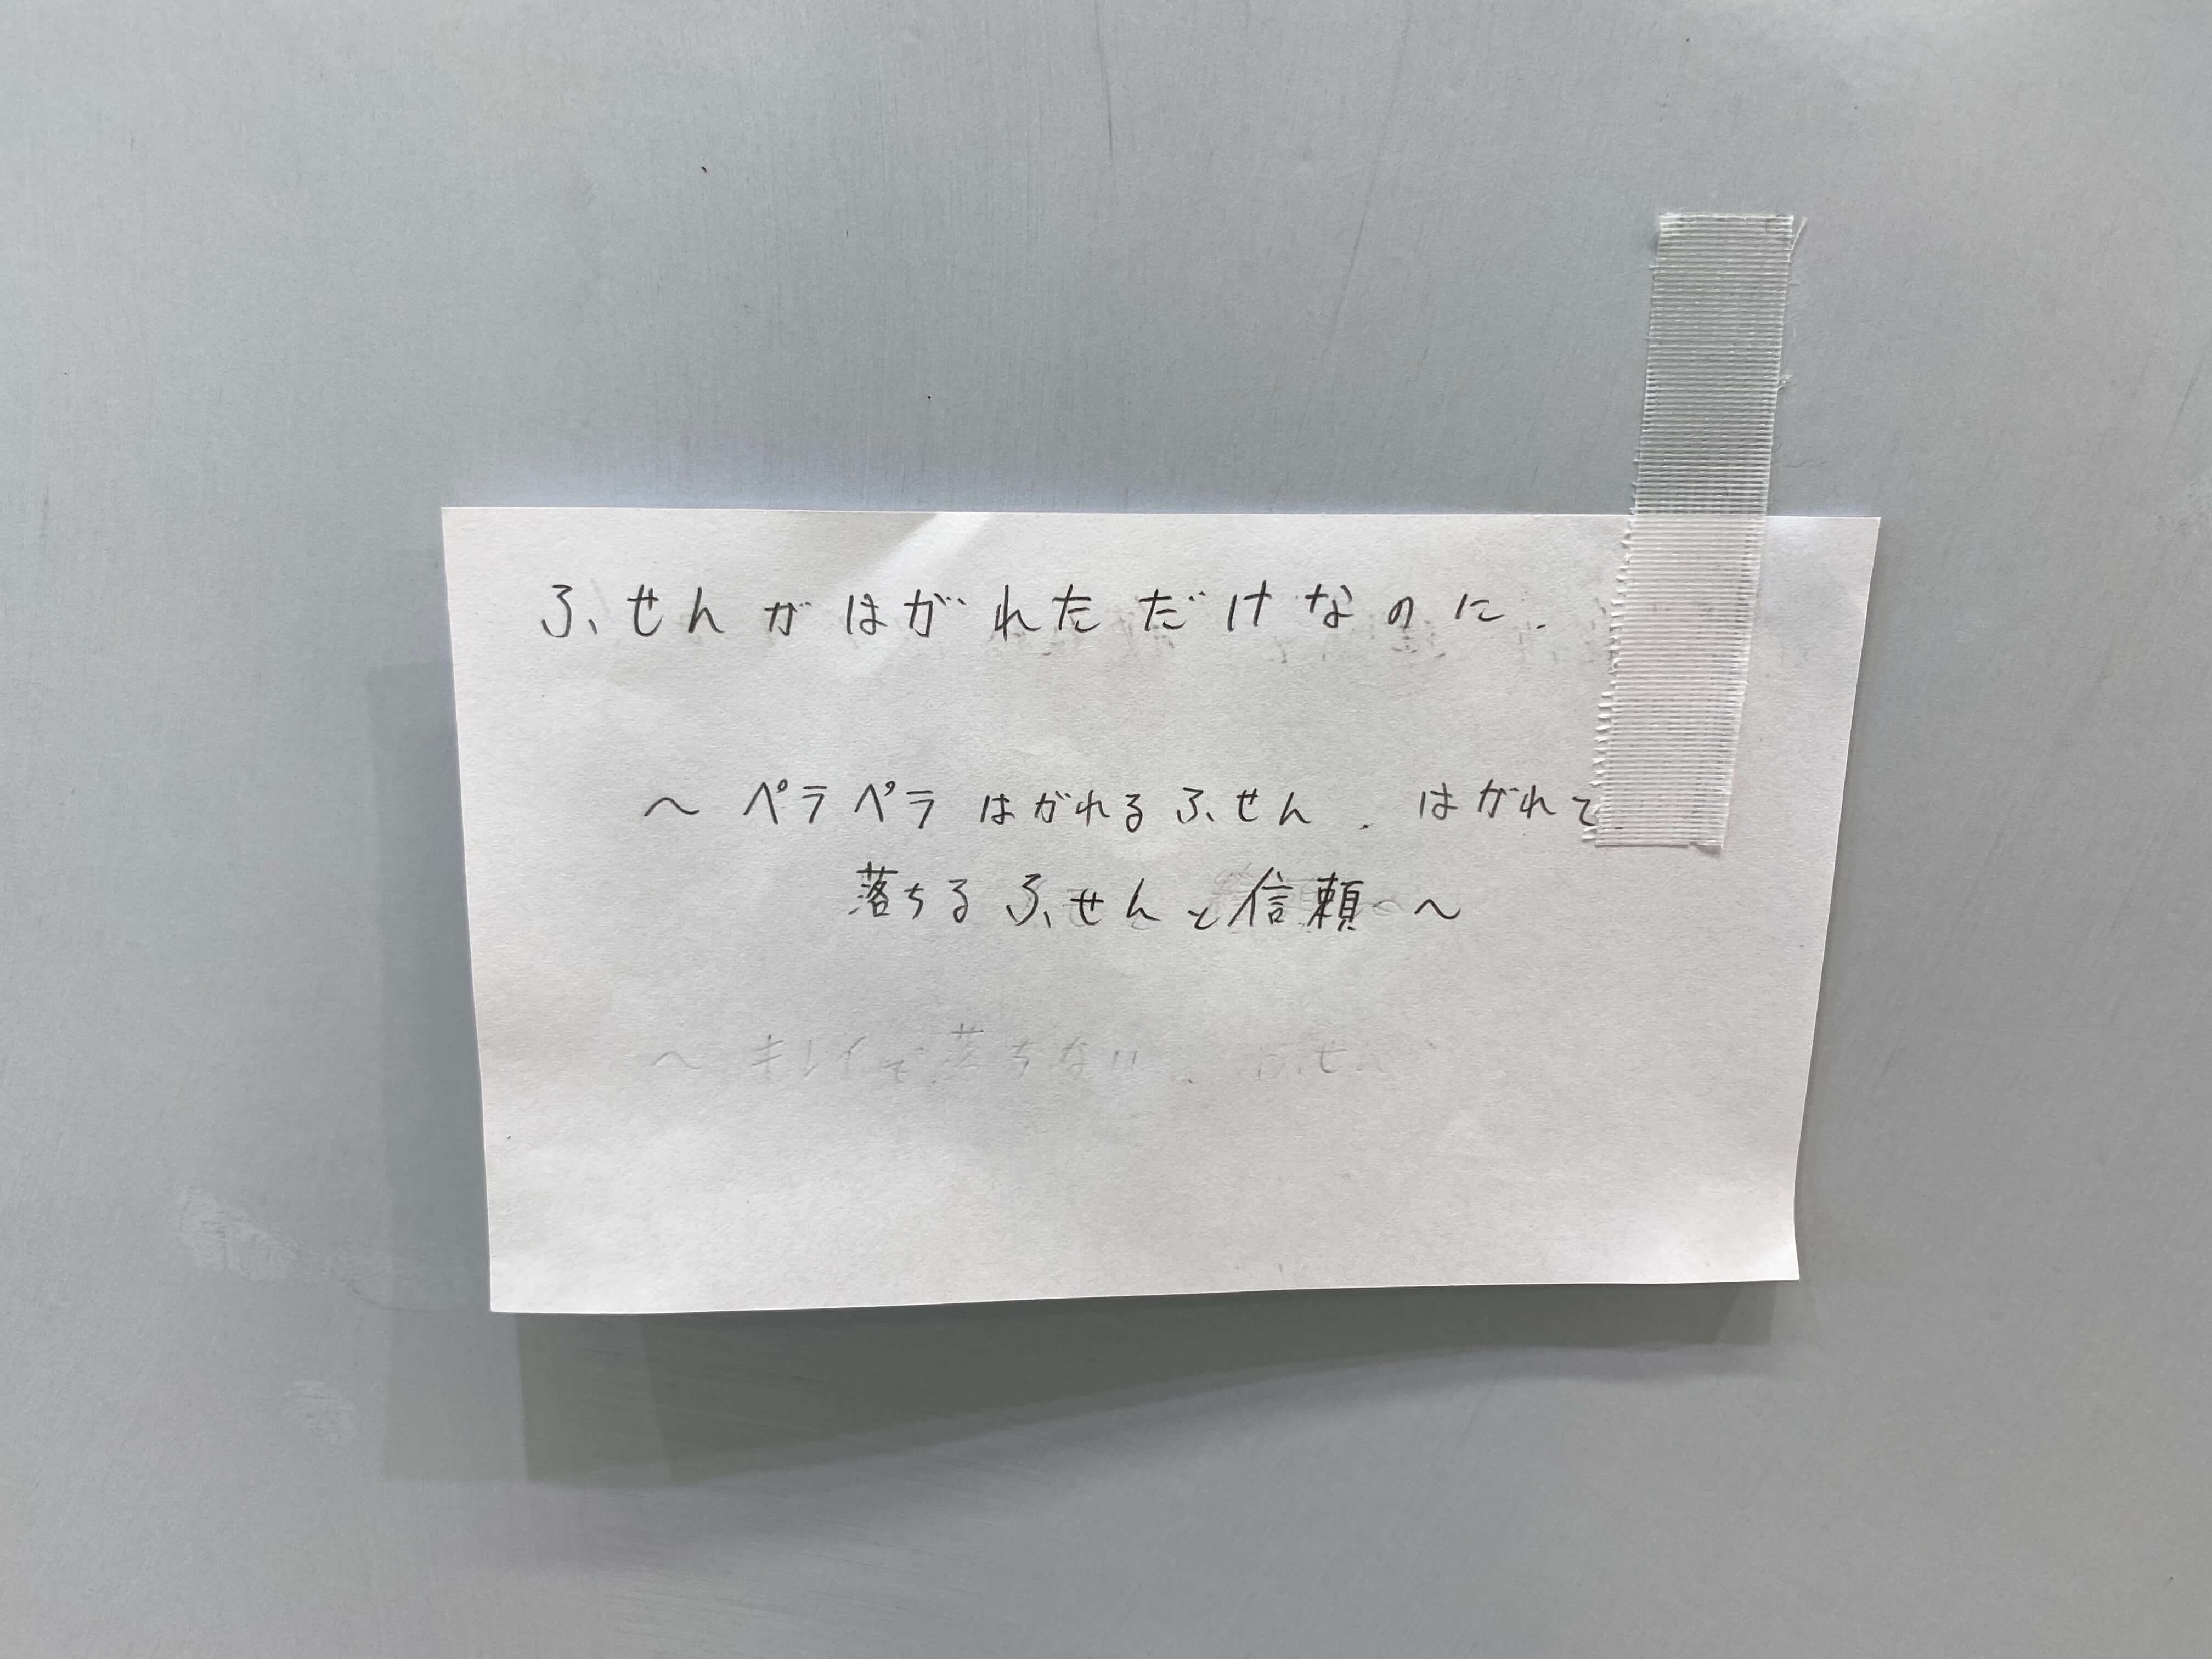 ふせんがはがれただけなのに.
～ ペラペラ はがれるふせん . はがれて
落ちるふせんと信頼 ～
～ キレイで落ちない . ふせん